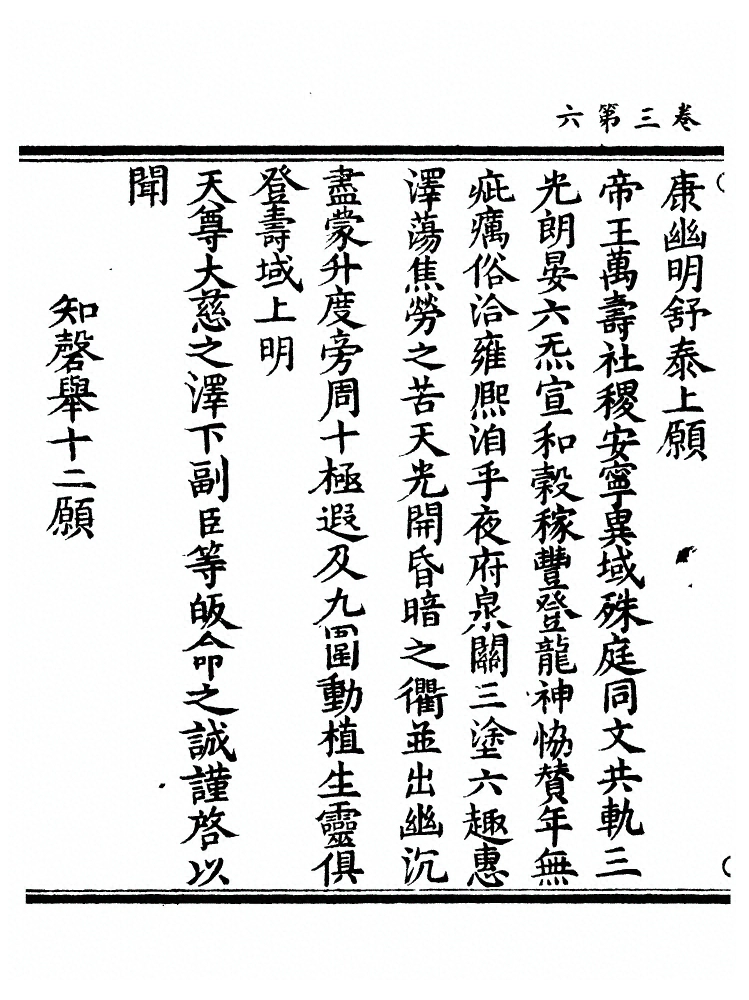 卷三第六
康幽明舒泰上願
帝王萬壽社稷安寧異域殊庭同文共軌三
光朗晏六炁宣和穀稼豐登龍神協贊年無
疵癘俗洽雍熙洎乎夜府泉關三塗六趣惠
澤蕩焦勞之苦天光開昏暗之衢並出幽沉
盡蒙升度旁周十極遐及九圍動植生靈俱
登壽域上明
天尊大慈之澤下副臣等皈命之誠謹啓以
聞
知磬舉十二願